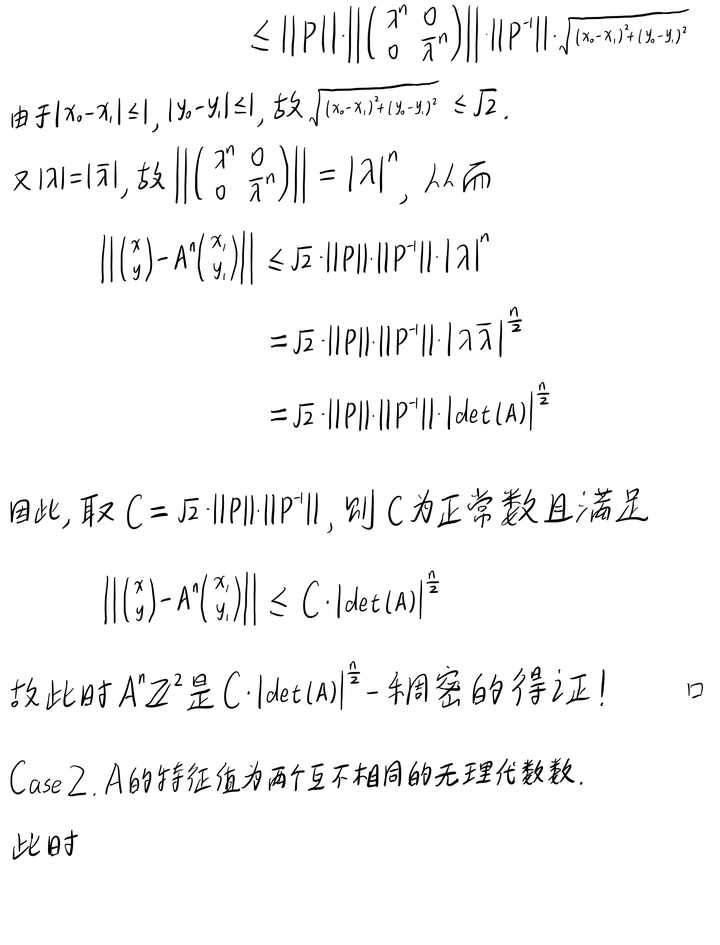 ≤ ||P||·||(λⁿ 0; 0 λ̄ⁿ)||·||P⁻¹||·√((x₀-x₁)²+(y₀-y₁)²)
由于|x₀-x₁|≤1, |y₀-y₁|≤1, 故√((x₀-x₁)²+(y₀-y₁)²) ≤√2.
又|λ|=|λ̄|, 故||(λⁿ 0; 0 λ̄ⁿ)|| = |λ|ⁿ, 从而
||(x; y)-Aⁿ(x₁; y₁)|| ≤√2·||P||·||P⁻¹||·|λ|ⁿ
=√2·||P||·||P⁻¹||·|λλ̄|^(n/2)
=√2·||P||·||P⁻¹||·|det(A)|^(n/2)
因此, 取 C=√2·||P||·||P⁻¹||, 则 C为正常数且满足
||(x; y)-Aⁿ(x₁; y₁)|| ≤ C·|det(A)|^(n/2)
故此时 Aⁿℤ²是 C·|det(A)|^(n/2)-稠密的得证! □
Case 2. A的特征值为两个互不相同的无理代数数.
此时